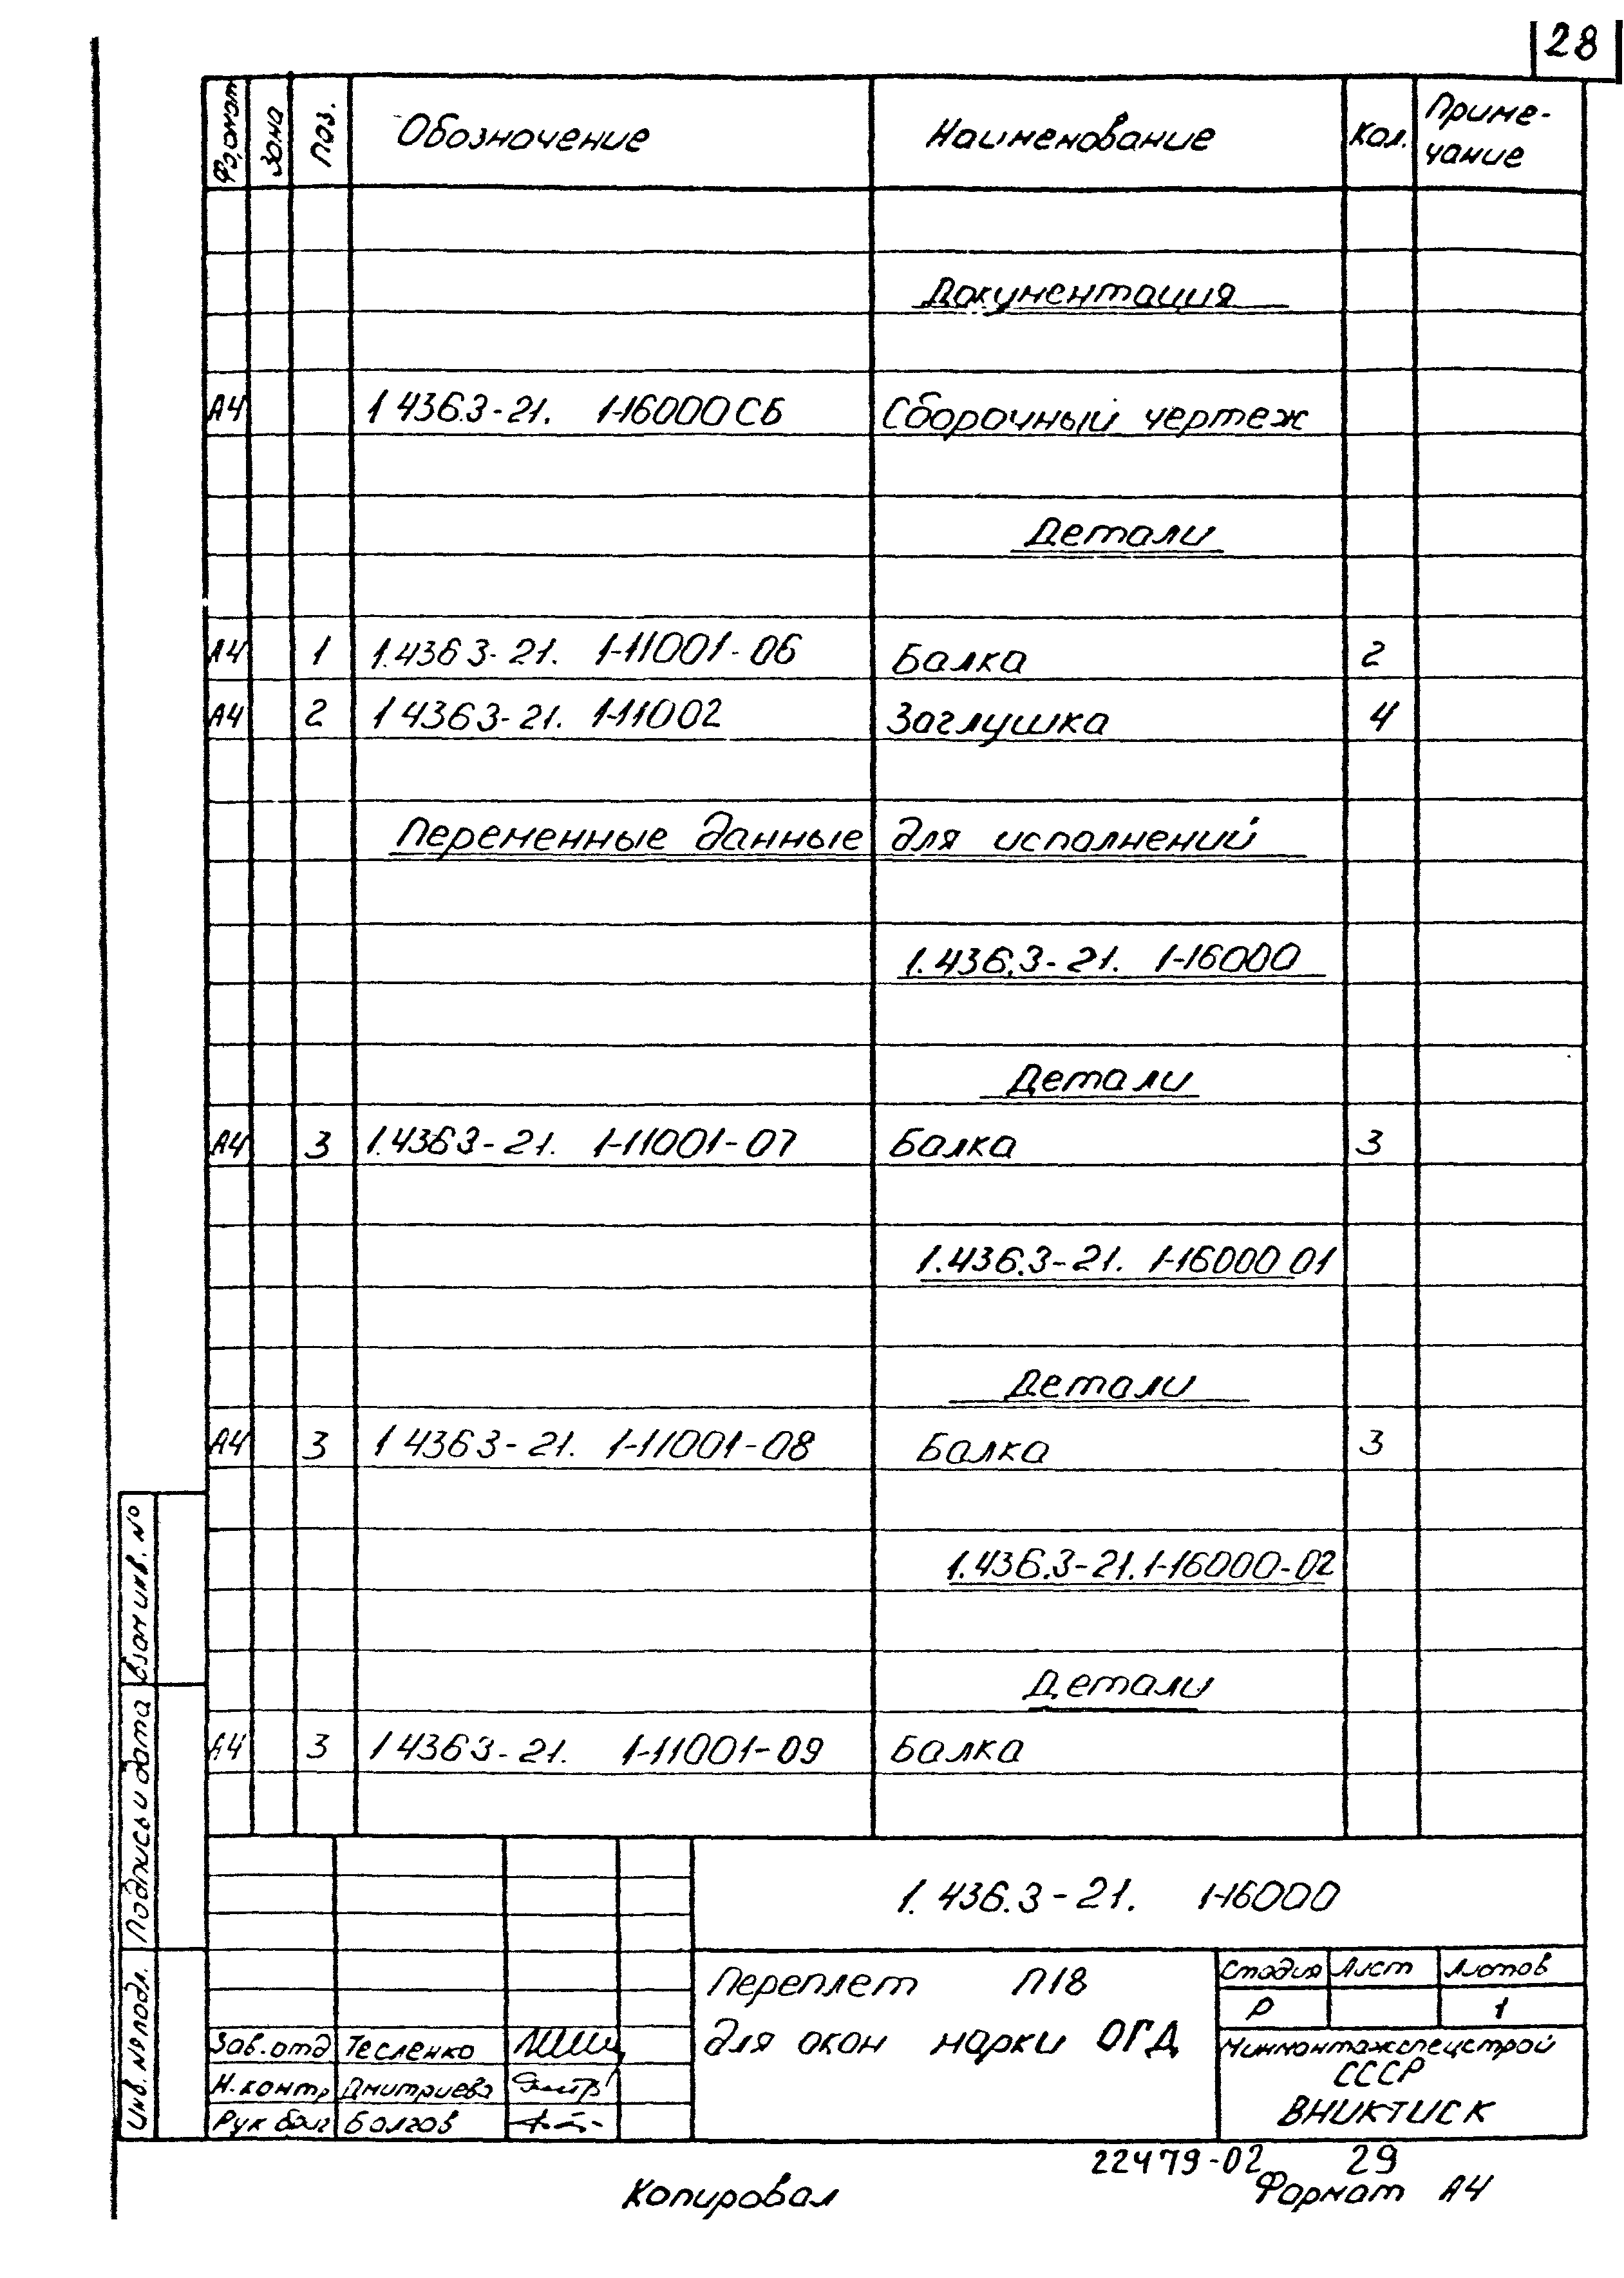 28
Формат Зона Поз. Обозначение Наименование Кол. Приме-
чание
Документация
А4 1 436.3-21. 1-16000 СБ Сборочный чертеж
Детали
А4 1 1.436 3-21. 1-11001-06 Балка 2
А4 2 1 436 3-21. 1-11002 Заглушка 4
Переменные данные для исполнений
1.436.3-21. 1-16000
Детали
А4 3 1.436 3-21. 1-11001-07 Балка 3
1.436.3-21. 1-16000 01
Детали
А4 3 1 436 3-21. 1-11001-08 Балка 3
1.436.3-21. 1-16000-02
Детали
А4 3 1 436 3-21. 1-11001-09 Балка
Взам инв. №
Подпись и дата
Инв. № подл.
1. 436.3-21. 1-16000
Переплет П18
для окон марки ОГД
Стадия Лист Листов
Р 1
Минмонтажспецстрой
СССР
ВНИКТИСК
Зав. отд Тесленко
Н. контр Дмитриева
Рук бриг Болгов
22479-02 29
Копировал Формат А4